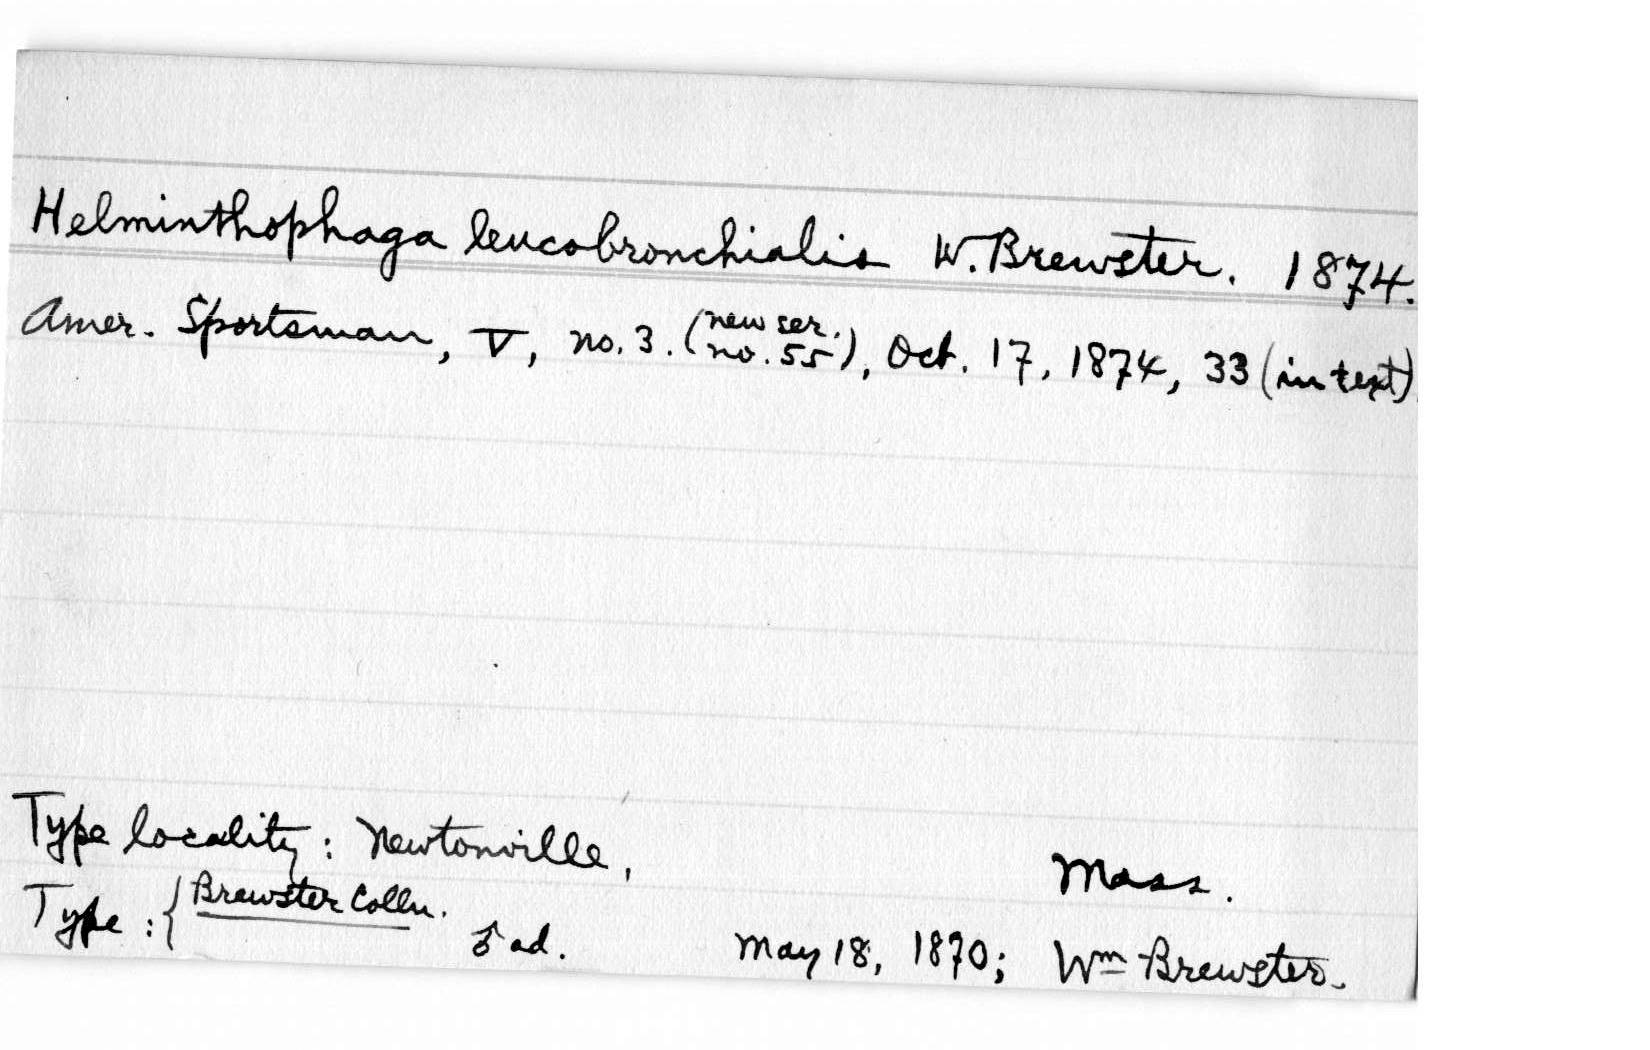 Helminthophaga leucobronchialis W. Brewster. 1874.
Amer. Sportsman, V, no. 3. (new ser. no. 55), Oct. 17, 1874, 33 (in text)
Type locality: Newtonville, Mass.
Type: { Brewster Colln.
♂ ad. May 18, 1870; Wm Brewster.